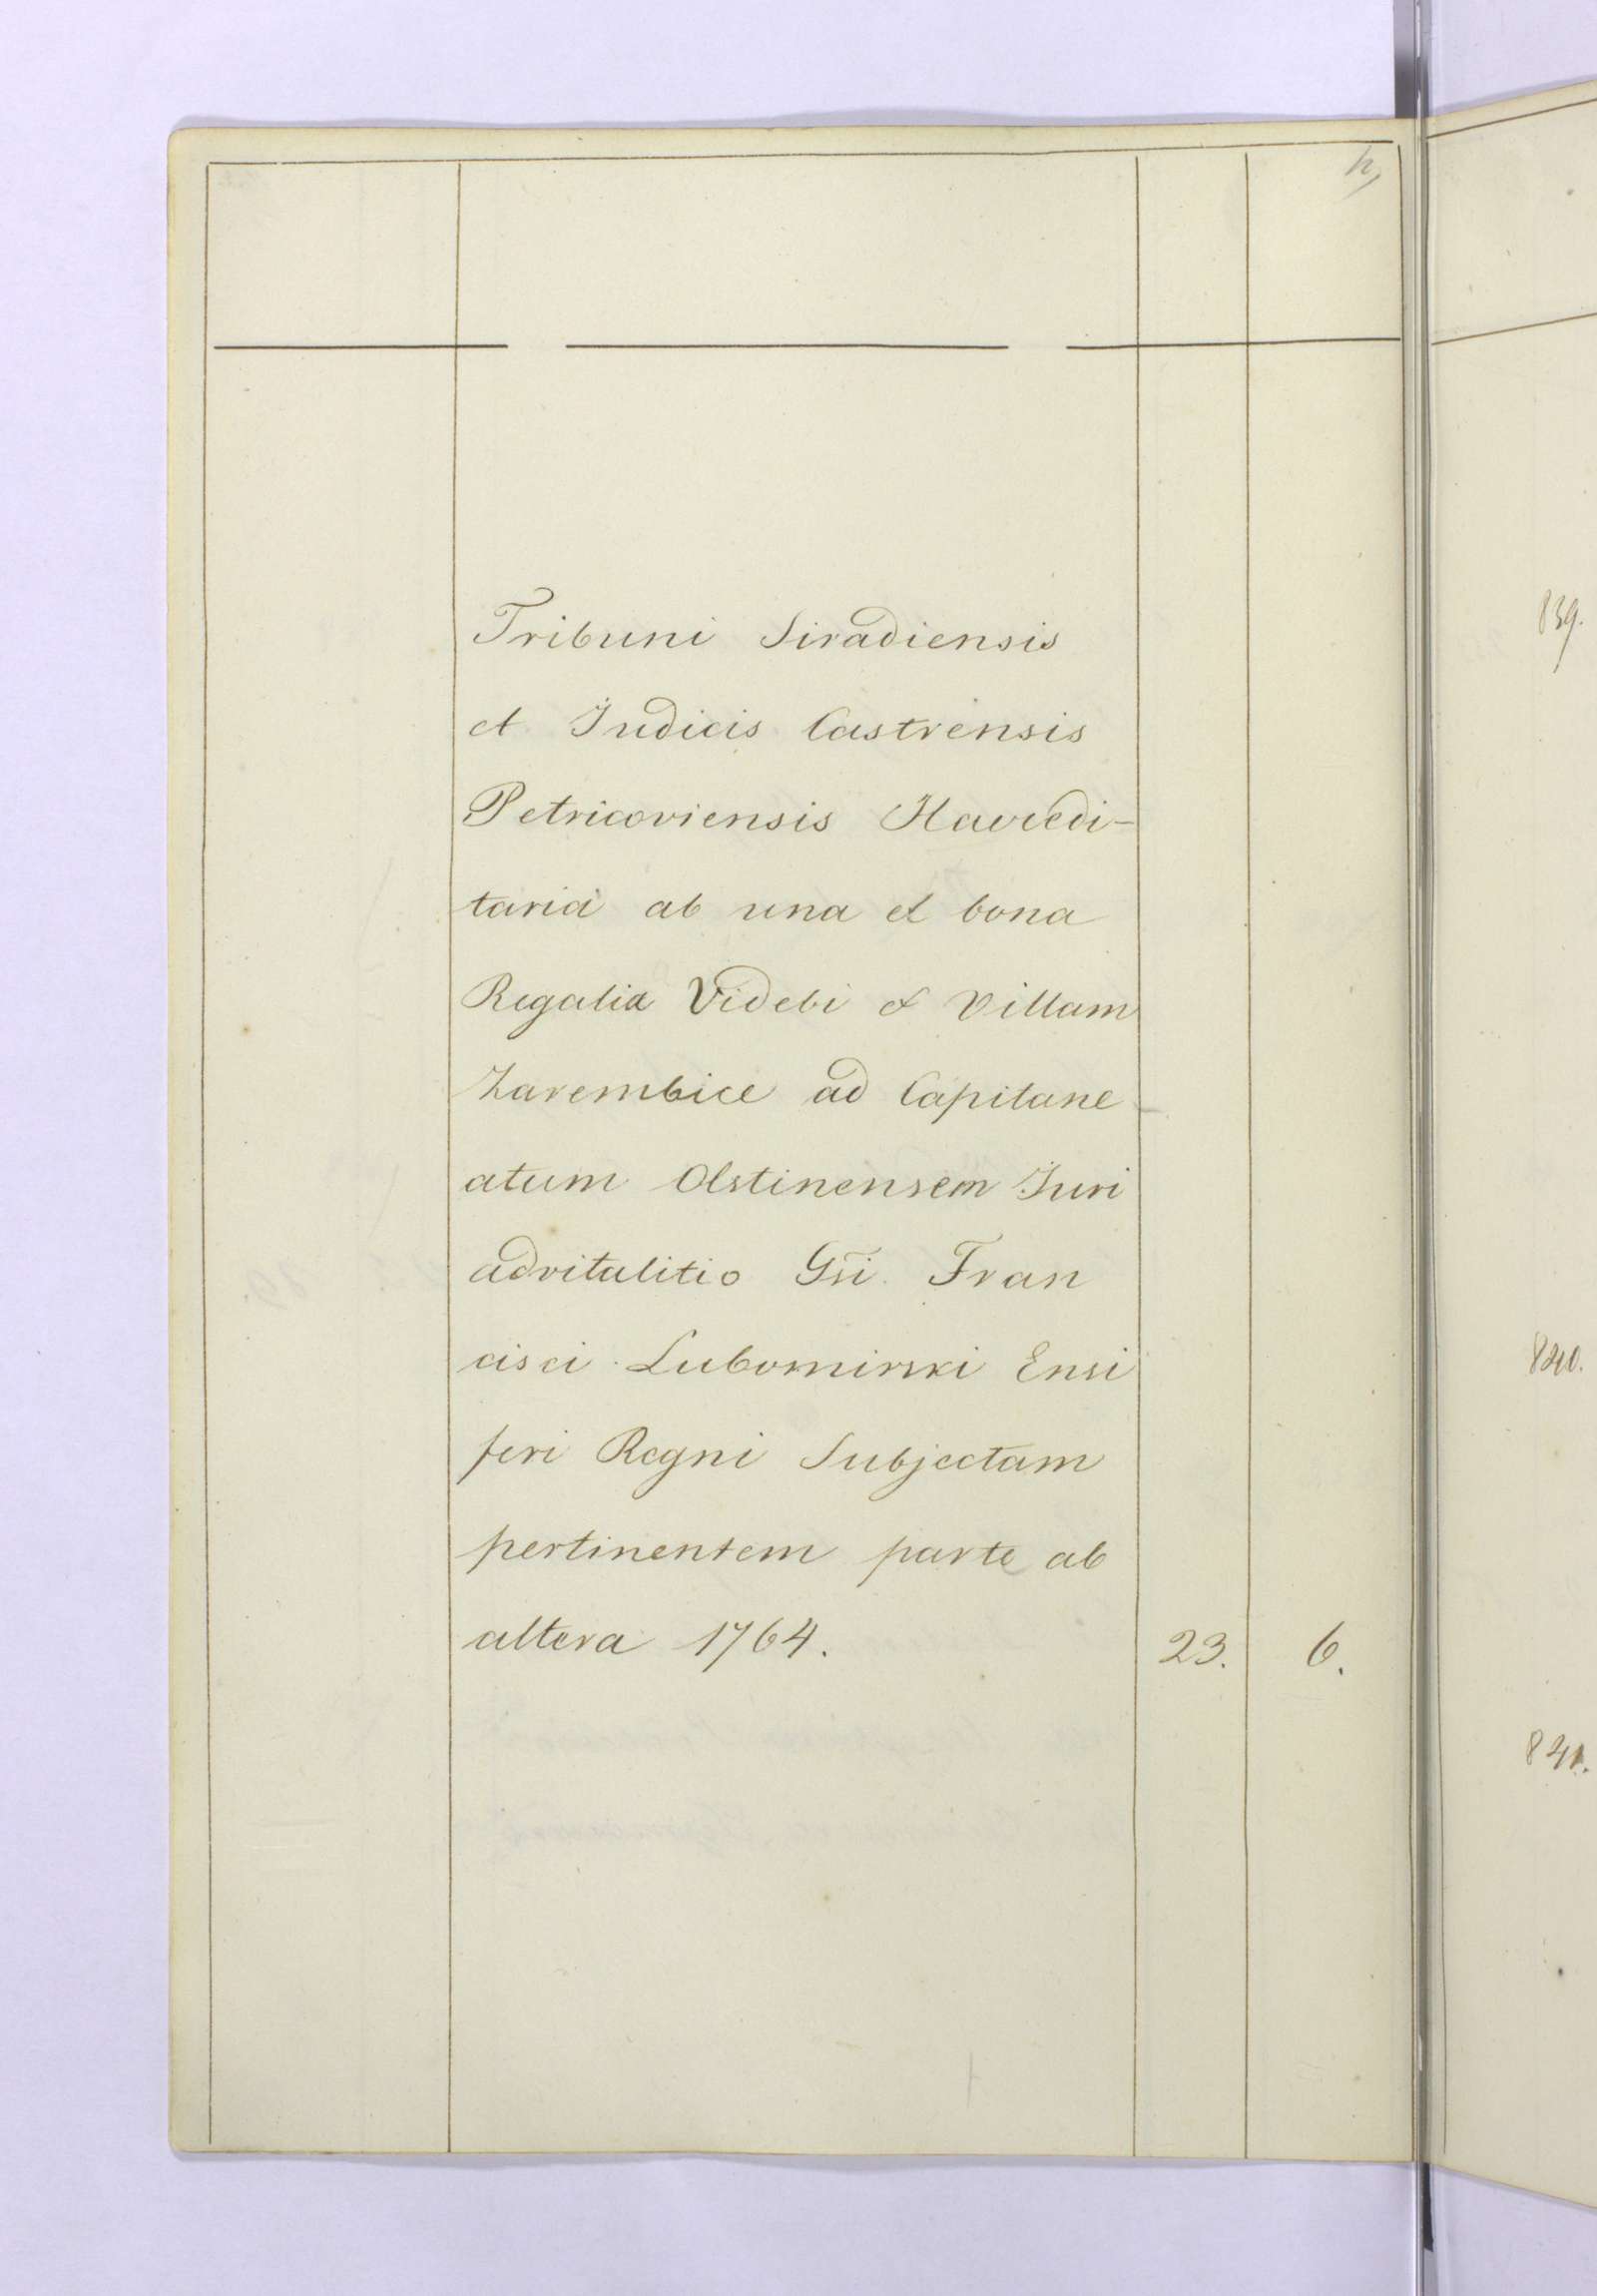 Tribuni Siradiensis
et Judicis Castrensis
Petricoviensis Haeredi-
taria ab una et bona
Regalia Videbi et Villam
Zarembice ad Capitane-
atum Olstinensem Juri
advitalitio Gsi. Fran
cisci Lubomirski Ensi
feri Regni Subjectam
pertinentem parte ab
altera 1764. 23. 6.
839.
840.
841.